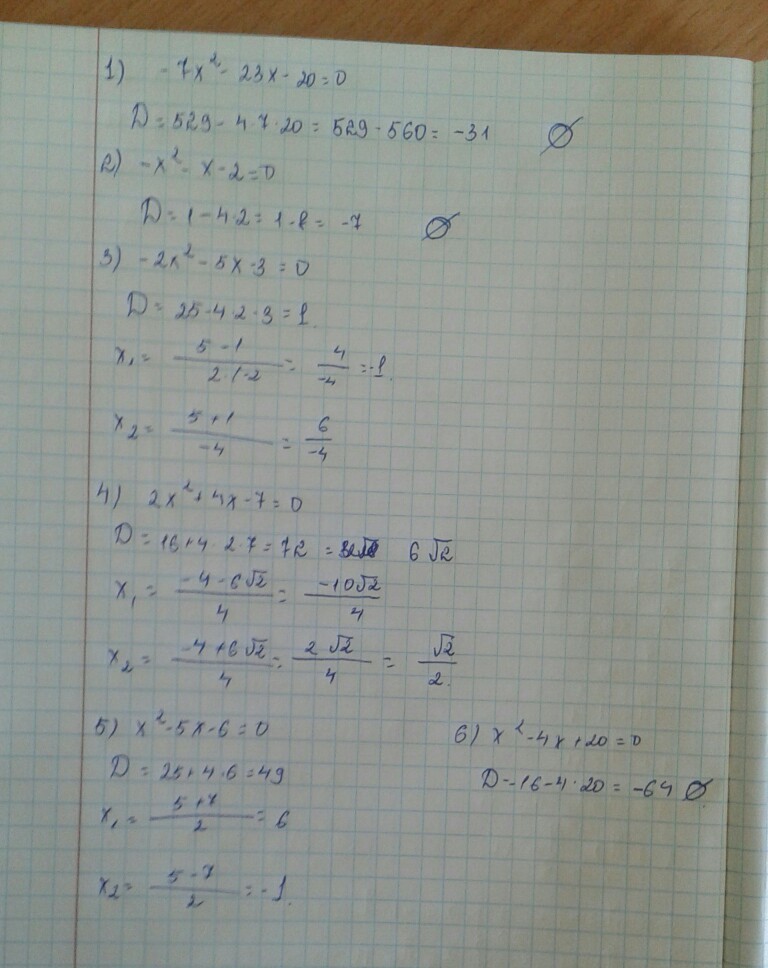 1) -7x² - 23x - 20 = 0
D = 529 - 4·7·20 = 529 - 560 = -31 ∅
2) -x² - x - 2 = 0
D = 1 - 4·2 = 1 - 8 = -7 ∅
3) -2x² - 5x - 3 = 0
D = 25 - 4·2·3 = 1.
x₁ = (5 - 1)/(2·(-2) = 4/-4 = -1.
x₂ = (5 + 1)/-4 = 6/-4
4) 2x² + 4x - 7 = 0
D = 16 + 4·2·7 = 72 = 6√2
x₁ = (-4 - 6√2)/4 = -10√2/4
x₂ = (-4 + 6√2)/4 = 2√2/4 = √2/2.
5) x² - 5x - 6 = 0
D = 25 + 4·6 = 49
x₁ = (5 + 7)/2 = 6
x₂ = (5 - 7)/2 = -1.
6) x² - 4x + 20 = 0
D = 16 - 4·20 = -64 ∅